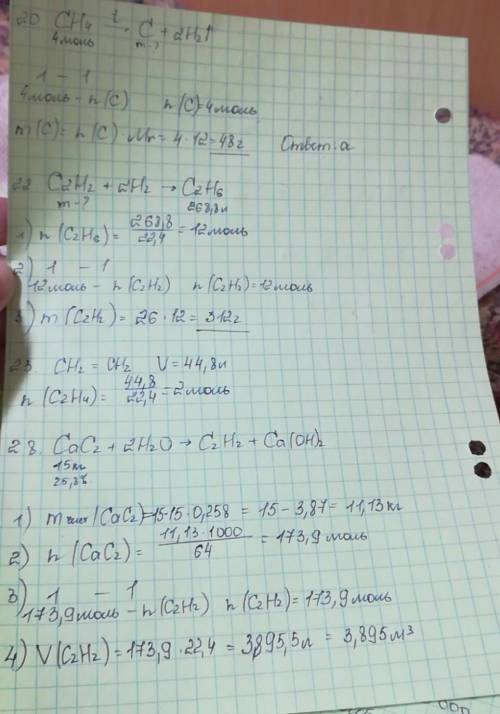 20 CH₄ t→ C + 2H₂↑
4моль m-?
1 – 1
4моль – n(C) n(C)=4моль
m(C) = n(C) · Mr = 4·12=48г Ответ: а
22 C₂H₂ + 2H₂ → C₂H₆
m-? 268,8л
1) n(C₂H₆) = 268,8/22,4 = 12моль
2) 1 – 1
12моль – n(C₂H₂) n(C₂H₂)=12моль
3) m(C₂H₂) = 26·12 = 312г
23. CH₂ = CH₂ V=44,8л
n(C₂H₄) = 44,8/22,4 = 2моль
28. CaC₂ + 2H₂O → C₂H₂ + Ca(OH)₂
15кг
25,8%
1) m (CaC₂)=15-15·0,258 = 15-3,87= 11,13кг
2) n(CaC₂) = 11,13·1000/64 = 173,9моль
3) 1 – 1
173,9моль – n(C₂H₂) n(C₂H₂)=173,9моль
4) V(C₂H₂)=173,9·22,4 = 3895,5л = 3,895м³